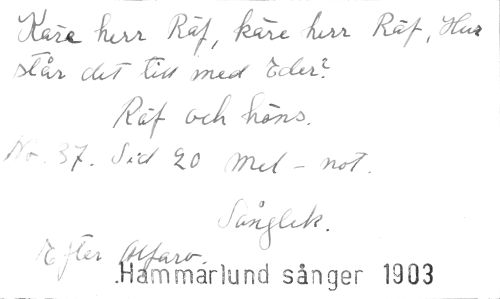 Käre herr Räf, käre herr Räf, Hur
står det till med Eder?
Räf och höns.
No. 37. Sid 20 Mel-not.
Sånglek.
Efter
Hammarlund sånger 1903